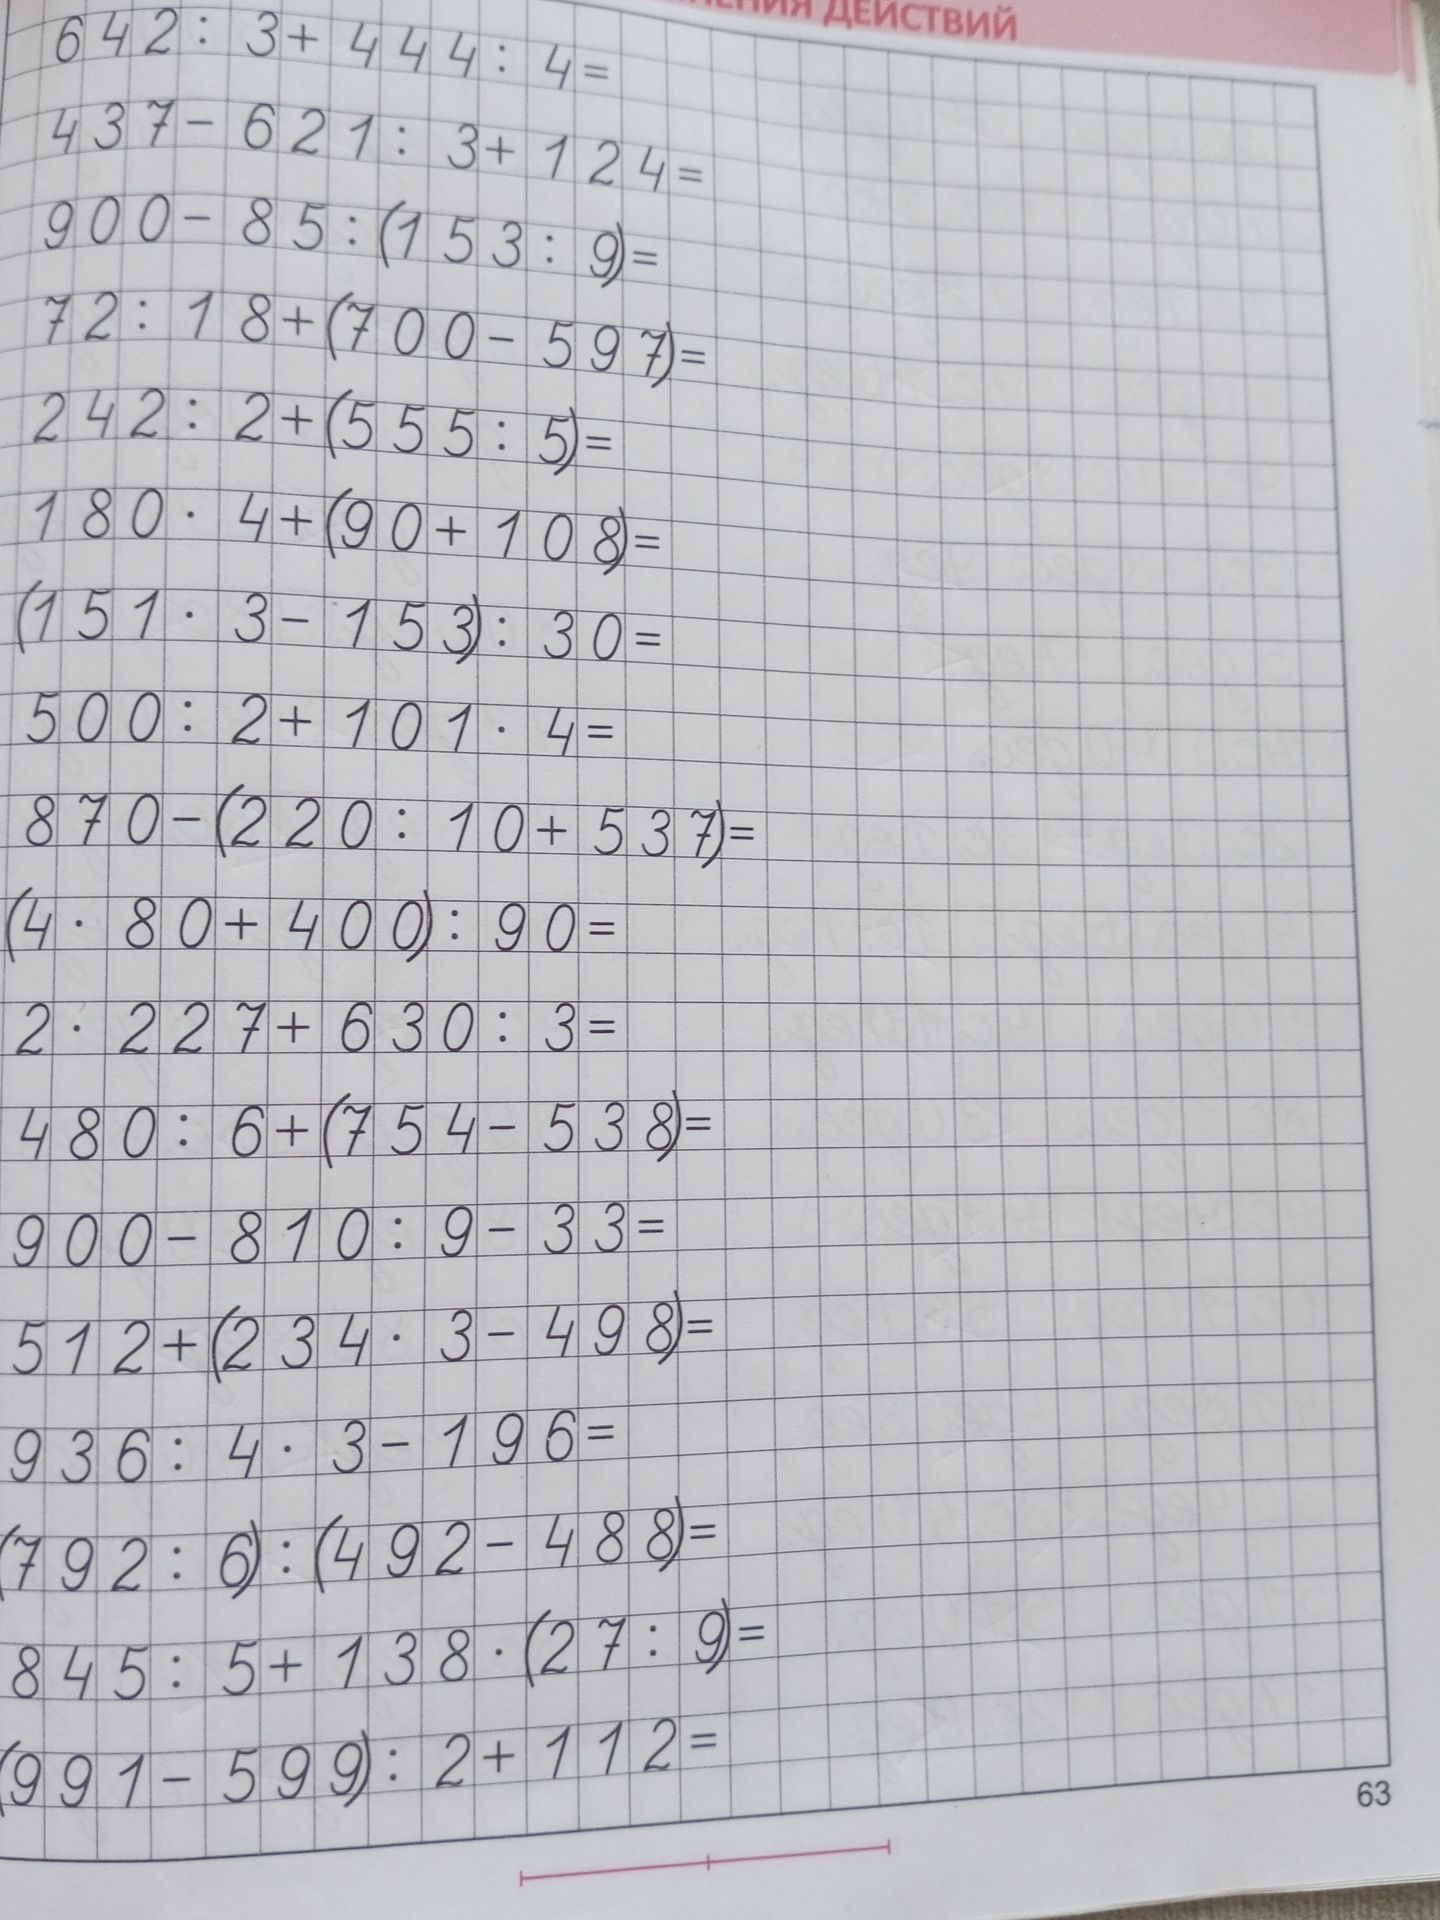 ДЕЙСТВИЙ
642: 3+ 444: 4=
437- 621: 3+ 124=
900- 85:(153: 9)=
72: 18+(700- 597)=
242: 2+(555: 5)=
180· 4+(90+ 108)=
(151· 3- 153): 30=
500: 2+ 101· 4=
870-(220: 10+ 537)=
(4· 80+ 400): 90=
2· 227+ 630: 3=
480: 6+(754- 538)=
900- 810: 9- 33=
512+(234· 3- 498)=
936: 4· 3- 196=
(792: 6):(492- 488)=
845: 5+ 138·(27: 9)=
(991- 599): 2+ 112=
63